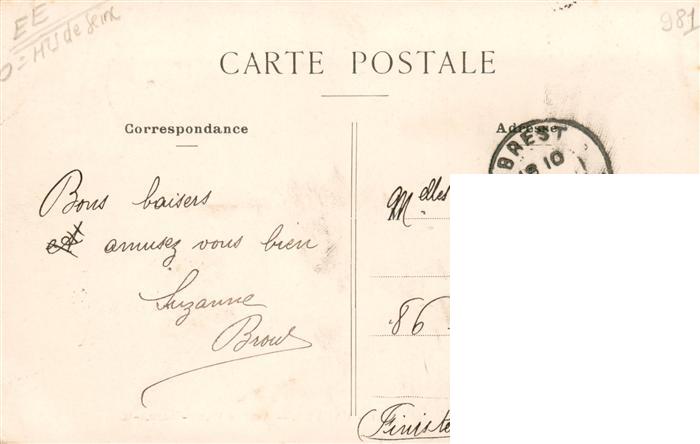 EE
981
CARTE POSTALE
Correspondance
Adresse
BREST
18 10
Bons baisers
amusez vous bien
Suzanne
Melles
86
Finistè